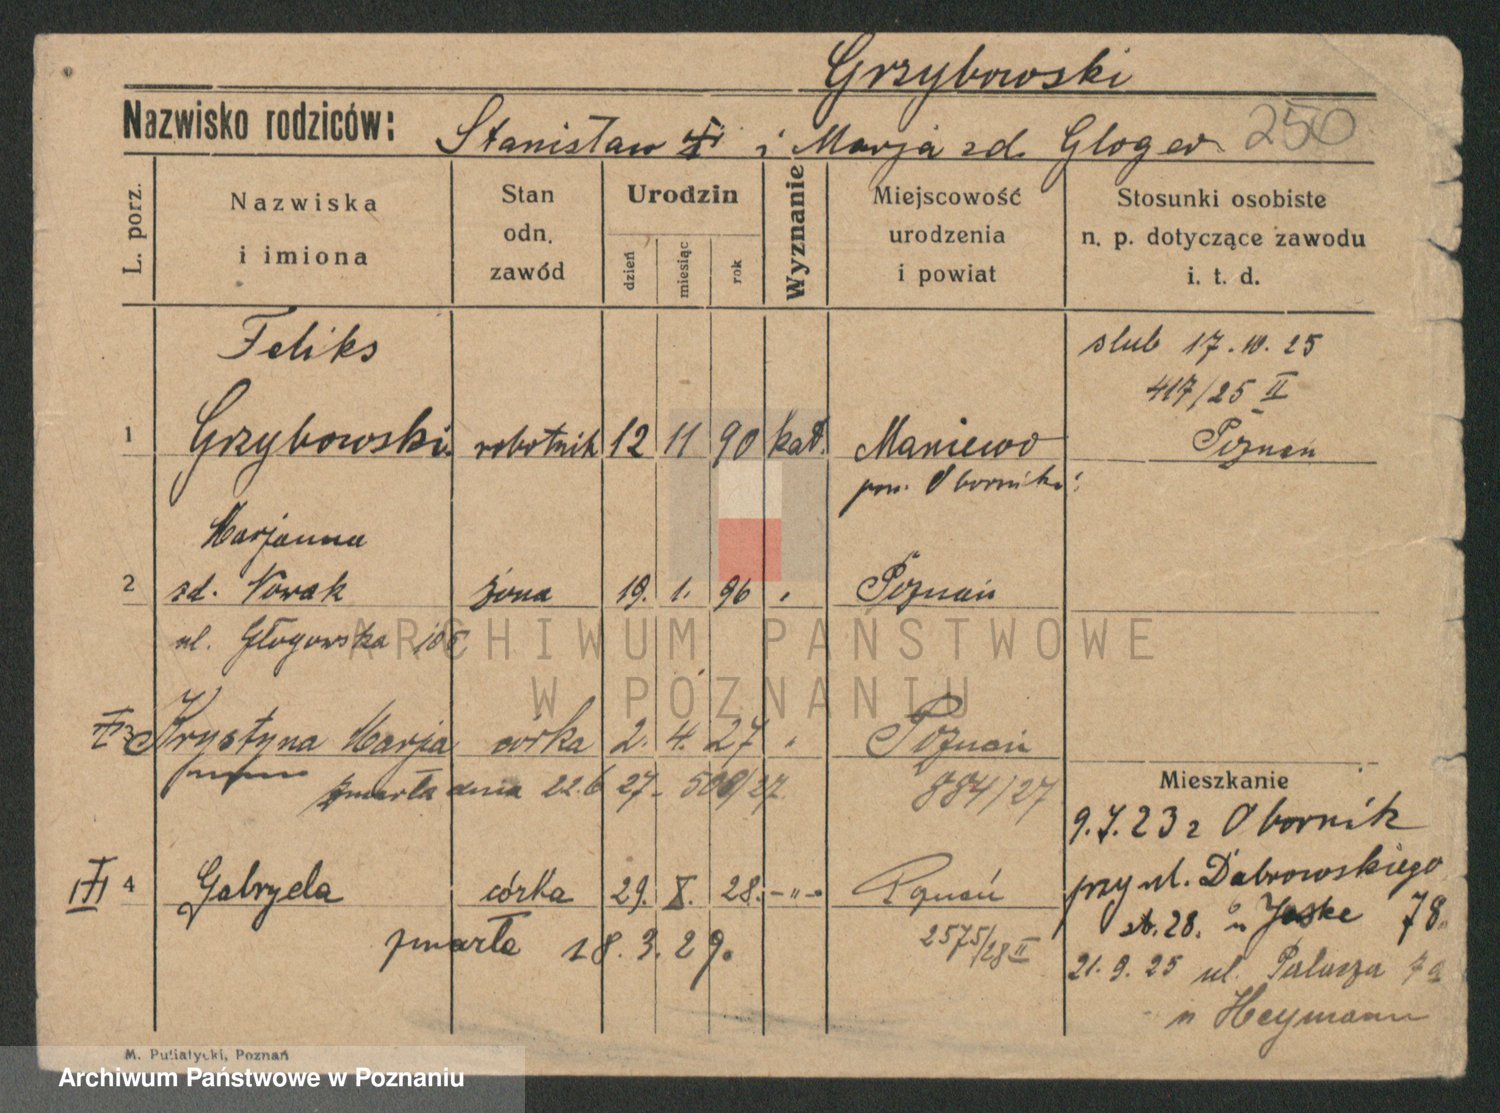 Grzybowski
Nazwisko rodziców: Stanisław i Marja zd. Gloger 250
L. porz.
Nazwiska
i imiona
Stan
odn.
zawód
Urodzin
dzień
miesiąc
rok
Wyznanie
Miejscowość
urodzenia
i powiat
Stosunki osobiste
n. p. dotyczące zawodu
i. t. d.
Feliks slub 17.10.25
417/25 II
1 Grzybowski robotnik 12 11 90 kat. Maniewo Poznań
pow. Oborniki
Marjanna
2 zd. Nowak żona 19. 1. 96 " Poznań
ul. Głogowska
ARCHIWUM PAŃSTWOWE
W POZNANIU
3 Krystyna Marja córka 2. 4. 27 " Poznań
zmarła dnia 22.6 27- 509/27 884/27
Mieszkanie
9.7.23 z Obornik
przy ul. Dąbrowskiego
III 4 Gabryela córka 29. X. 28. -"- Poznań
28. u Jeske 78.
zmarła 18.3.29. 2575/28 II
21.9.25 ul. Palacza
u Heymann
M. Putiatycki, Poznań
Archiwum Państwowe w Poznaniu